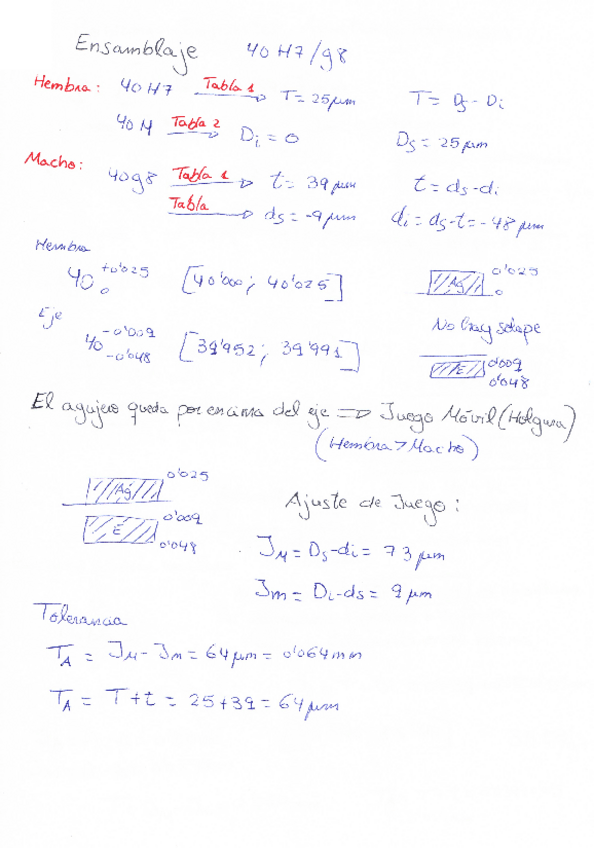 Ensamblaje 40 H7/g8
Hembra: 40 H7 Tabla 1 T = 25 μm T = Ds - Di
40 H Tabla 2 Di = 0 Ds = 25 μm
Macho: 40g8 Tabla 1 t = 39 μm t = ds - di
Tabla ds = -9 μm di = ds - t = -48 μm
Hembra
40 +0'025 0 [40'000 ; 40'025] Ag 0'025 0
Eje No hay solape
40 -0'009 -0'048 [39'952 ; 39'991] E 0'009 0'048
El agujero queda por encima del eje => Juego Móvil (Holgura)
(Hembra > Macho)
Ag 0'025
E 0'009 0'048
Ajuste de Juego :
JM = Ds - di = 73 μm
Jm = Di - ds = 9 μm
Tolerancia
TA = JM - Jm = 64 μm = 0'064 mm
TA = T + t = 25 + 39 = 64 μm